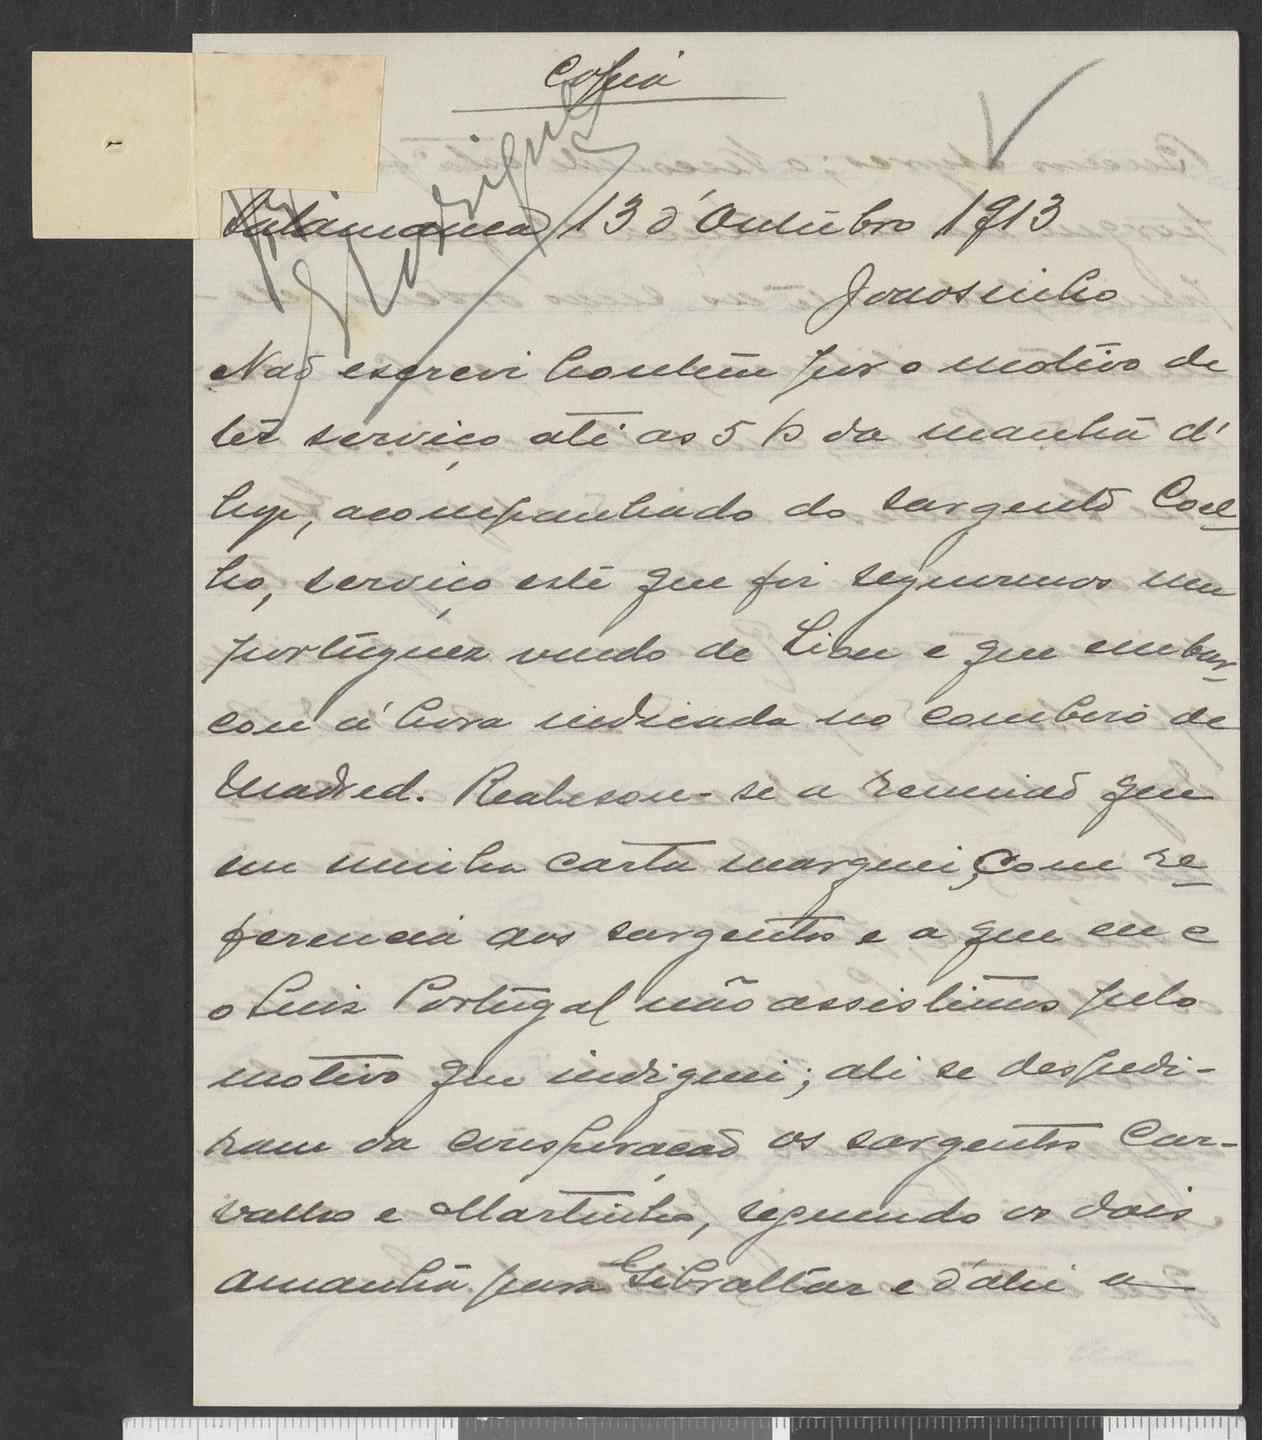 Copia
Salamanca 13 d'Outubro 1913
Joaosinho
Não escrevi hontem por o motivo de
ter serviço até as 5 h da manhã d'
hoje, acompanhado do sargento Coel-
ho, serviço este que foi seguirmos um
portuguez vindo de Lion e que embar-
cou á hora indicada no comboio de
Madrid. Realisou-se a reunião que
em minha carta marquei, com re-
ferencia aos sargentos e a que eu e
o Luiz Portugal não assistimos pelo
motivo que indiquei; ali se despedi-
ram da conspiração os sargentos Car-
valho e Martinho, seguindo os dois
amanhã para Gibraltar e d'ali a